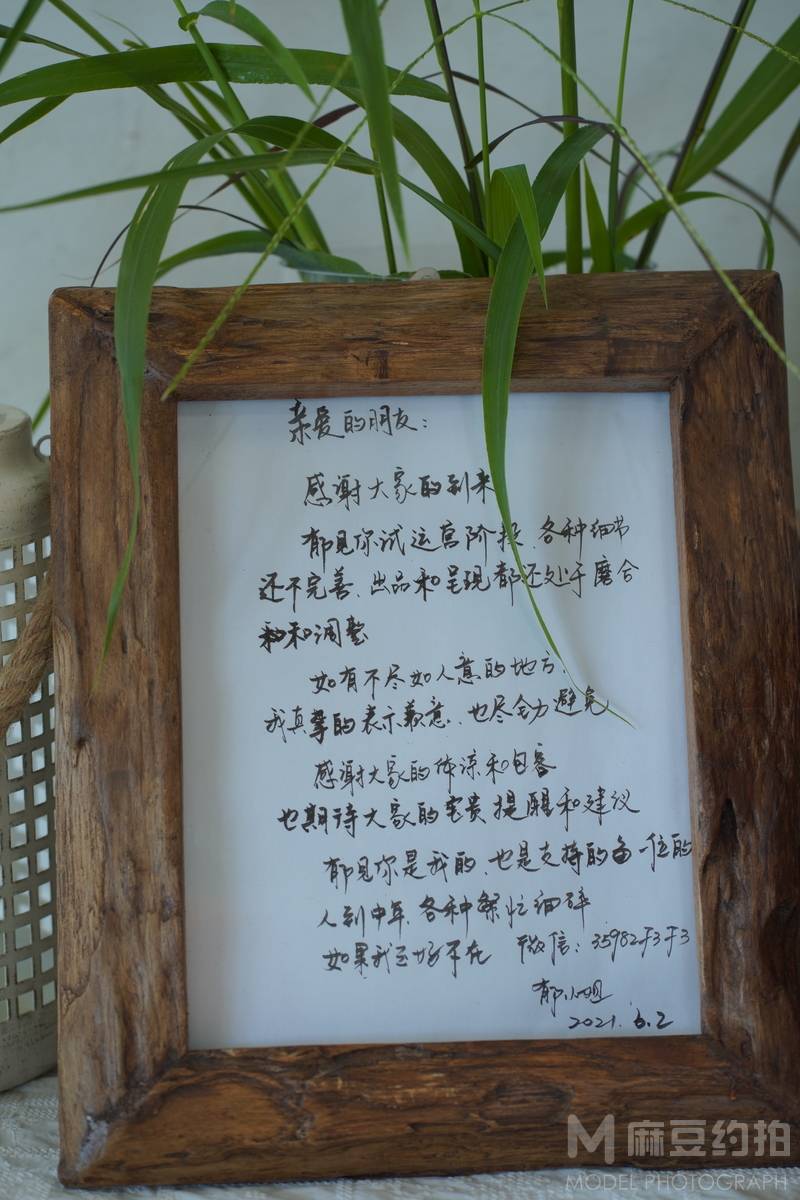 亲爱的朋友:
感谢大家的到来
郁见你试运营阶段、各种细节
还不完善、出品和呈现都还处于磨合
和调整
如有不尽如人意的地方、
我真挚的表示歉意、也尽全力避免
感谢大家的体谅和包容
也期待大家的宝贵提醒和建议
郁见你是我的、也是支持的每一位的
人到中年、各种繁忙细碎
如果我在场不在 微信:
郁小姐
2021.6.2
M 麻豆约拍
MODEL PHOTOGRAPH